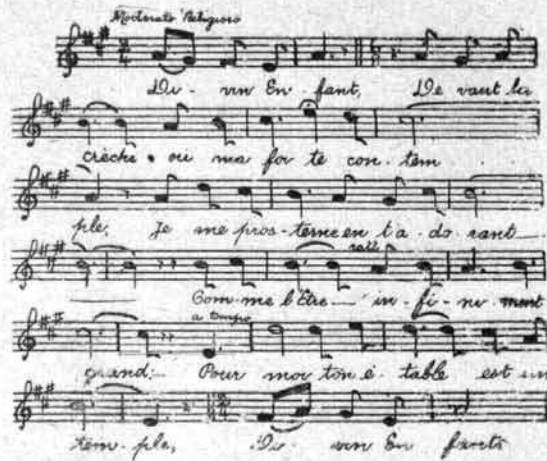 Moderato Religioso
Di - vin En - fant, De vant la
crèche où ma foi te con - tem
ple, Je me pros - terne en t'a - do - rant
rall
Com - me l'Être in - fi - ni - ment
a tempo
grand: Pour moi ton é - table est un
tem - ple, Di - vin En fants